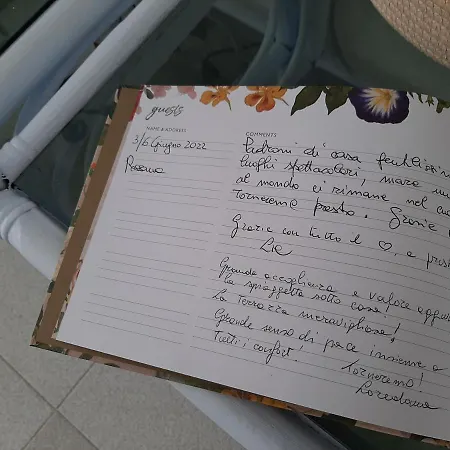 guests
NAME & ADDRESS
COMMENTS
3/6 Giugno 2022
Padroni di casa
luoghi spettacolari, mare
al mondo ci rimane nel
Torneremo presto. Grazie
Grazie con tutto il ♡, a
Grande accoglienza e valore
la spiaggetta sotto casa!
la Terrazza meravigliosa!
Grande senso di pace insieme a
Tutti i confort!
Torneremo!
Loredana